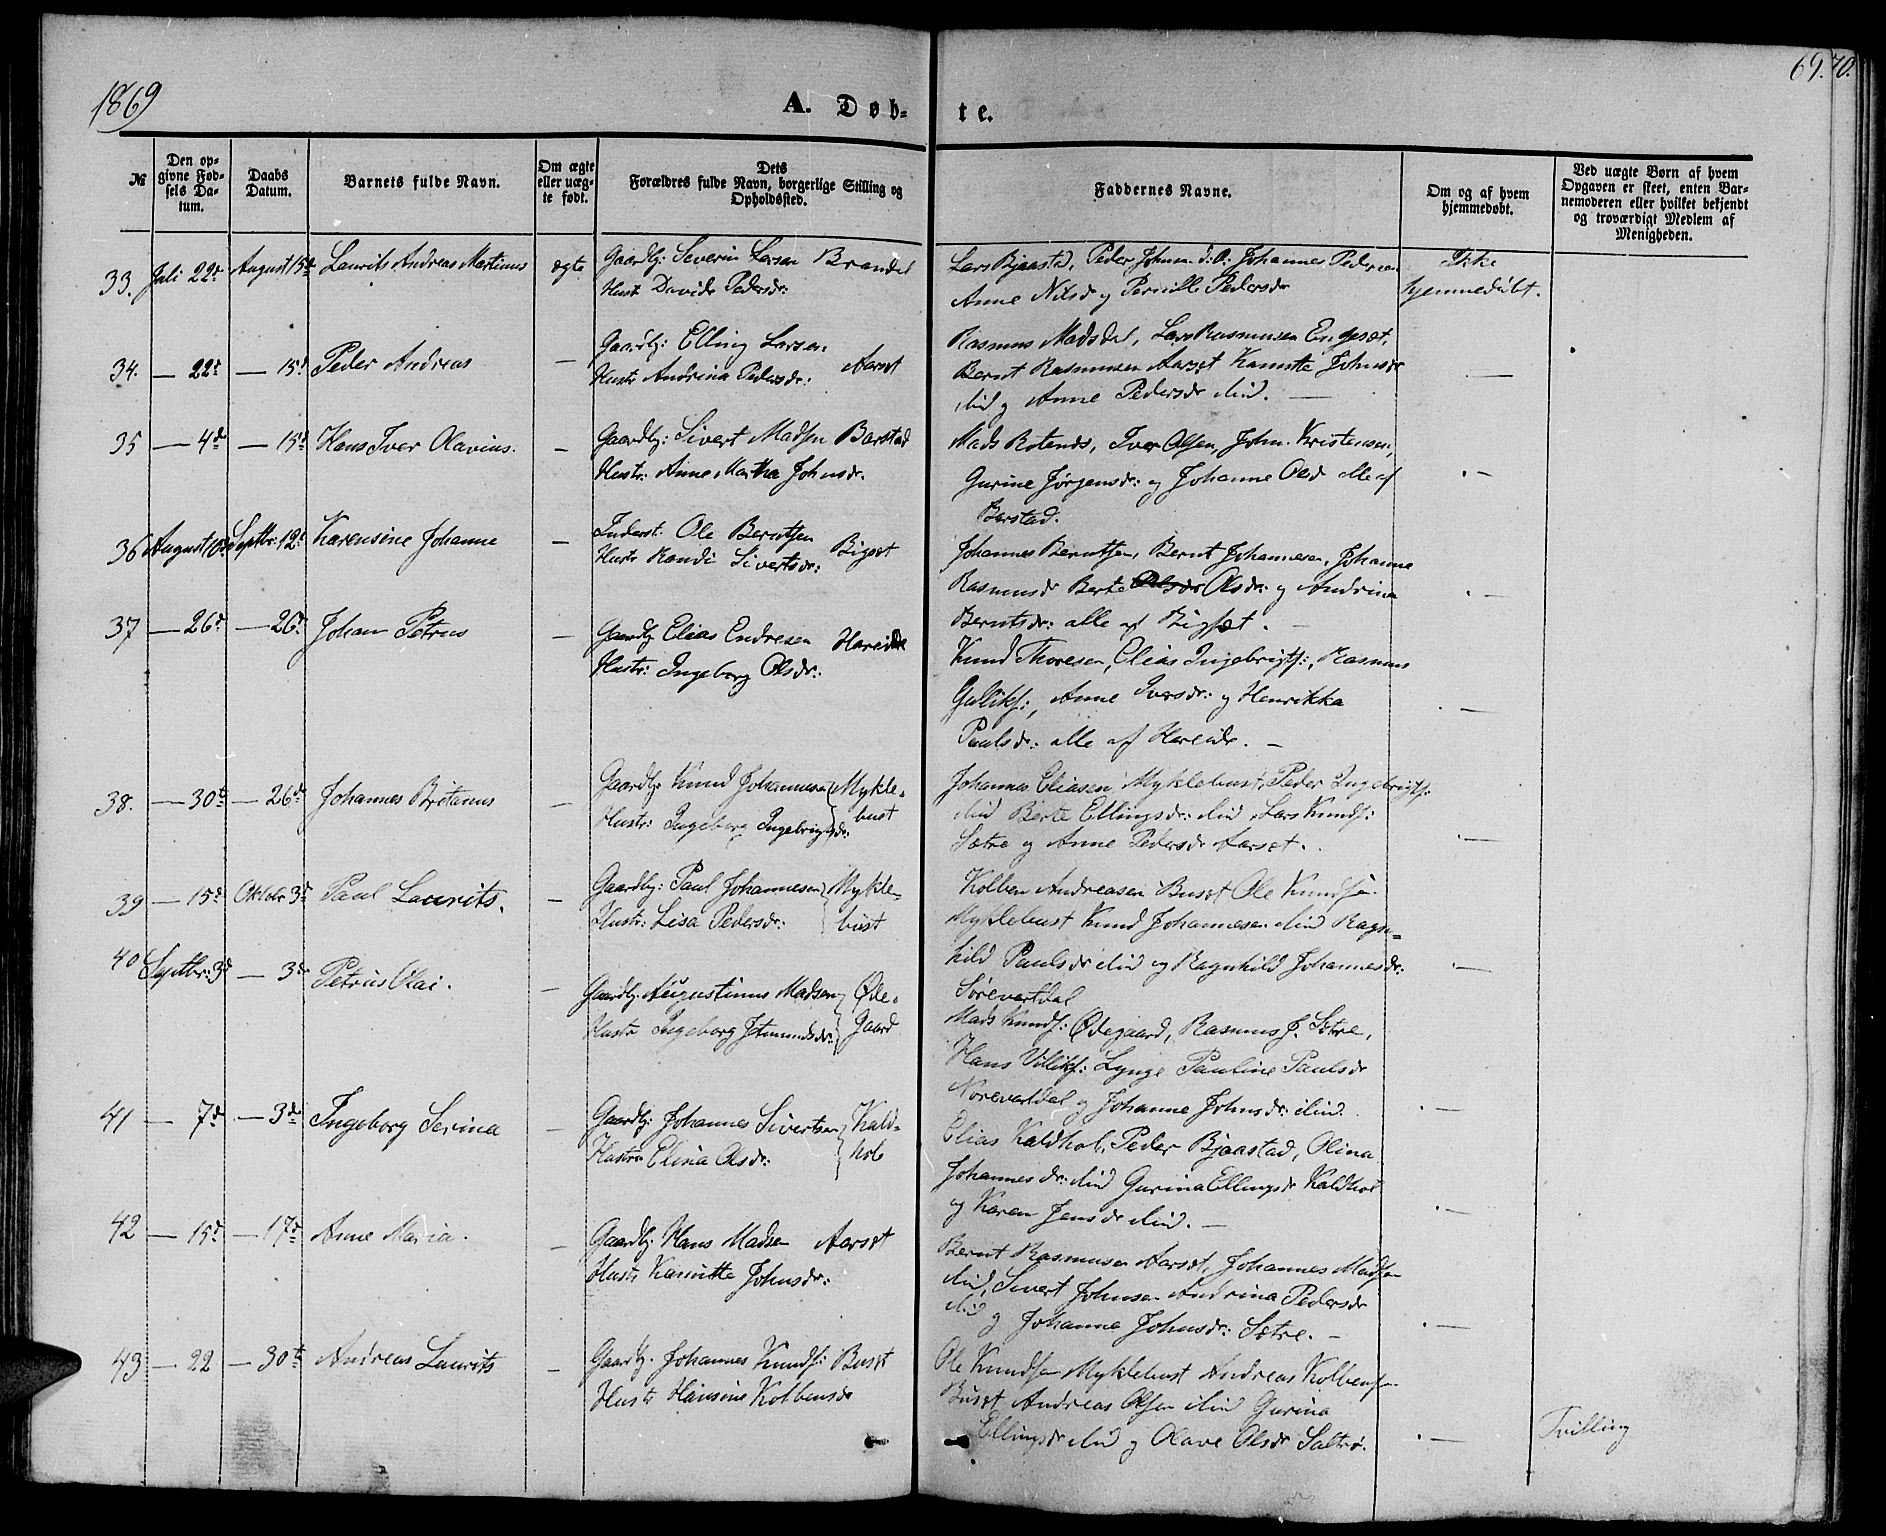 1869
A. Døb-
te.
69. 70.
№
Den op-
givne Fød-
sels Da-
tum.
Daabs
Datum.
Barnets fulde Navn.
Om ægte
eller uæg-
te født.
Dets
Forældres fulde Navn, borgerlige Stilling og
Opholdssted.
Faddernes Navne.
Om og af hvem
hjemmedøbt.
Ved uægte Børn af hvem
Opgaven er skeet, enten Bar-
nemoderen eller hvilket bekjendt
og troværdigt Medlem af
Menigheden.
33. Juli 22d August 15d Laurits Andreas Martinus ægte
Gaardbr: Severin Larsen Brandal
Hustr Davida Pedersdr:
Lars Bjaastad, Peder Johnsen Johannes Pedersen
Anne Nilsd og Pernille Pedersdr
Ikke
hjemmedøbt.
34. — 22d — 15d Peder Andreas —
Gaardbr: Elling Larsen
Hustr Andrina Pedersdr: Aarset
Rasmus Madsdal, Lars Rasmusen Engeset,
Bernt Rasmusen Aarset Kanutte Johnsdr
ibid og Anne Pedersdr ibid. —
—
35 — 4d — 15d Hans Iver Olavius. —
Gaardbr: Sivert Madsen Barstad
Hustr: Anne Martha Johnsdr.
Mads Rotends, Iver Olsen, John Kristensen,
Gurine Jørgensdr: og Johanne Olsd alle af
Berstad.
—
36 August 10d Septbr: 12d Karensine Johanne —
Inderst: Ole Berntsen
Hustr Randi Sivertsdr: Bigset
Johannes Berntsen, Bernt Johannesen, Johanne
Rasmusdr Berte Olsdr: og Andrina
Berntsdr: alle af Bigset. —
—
37 — 26d — 26d Johan Petrus —
Gaardbr Elias Endresen Hareide
Hustr: Ingeborg Olsdr:
Knud Thoresen, Elias Ingebrigts:, Rasmus
Gulliks:, Anne Iversdr: og Henrikka
Paulsdr: alle af Hareide. —
—
38. — 30te — 26d Johannes Britanus —
Gaardbr Knud Johannesen Mykle-
Hustr: Ingeborg Ingebrigtsdr: bust
Johannes Eliasen Myklebust, Peder Ingebrigts:
ibid Berte Ellingsdr: ibid Lars Knuds:
Sætre og Anne Pedersdr Aarset.
—
39 — 15d Oktobr 3d Paul Laurits. —
Gaardbr: Paul Johannesen Mykle-
Hustr: Lisa Pedersdr: bust
Kolben Andreasen Buset Ole Knudsen
Myklebust Knud Johannesen ibid Ragn-
hild Paulsdr ibid og Ragnhild Johannesdr:
Sørevartdal
—
40 Septbr: 3d — 3d Petrus Olai. —
Gaardbr. Augustinus Madsen Øde-
Hustr Ingeborg Jetmundsdr: gaard
Mads Knuds: Ødegaard, Rasmus J. Sætre,
Hans Villiks: Lynge Pauline Paulsdr
Norevartdal og Johanne Johnsdr: ibid.
—
41 — 7d — 3d Ingeborg Serina —
Gaardbr: Johannes Sivertsen Kald-
Hustr: Elina Olsdr: hol
Elias Kaldhol, Peder Bjaastad, Olina
Johannesdr: ibid Gurina Ellingsdr Kaldhol
og Karen Jensdr ibid. —
—
42 — 15d — 17d Anne Maria. —
Gaardbr. Hans Madsen Aarset
Hustr Kanutte Johnsdr:
Bernt Rasmusen Aarset, Johannes Madsen
ibid, Sivert Johnsen Andrina Pedersdr
ibid og Johanne Johnsdr: Sætre. —
—
43 — 22 — 30te Andreas Laurits —
Gaardbr. Johannes Knuds: Buset
Hustr Hansine Kolbensdr
Ole Knudsen Myklebust Andreas Kolbens.
Buset Andreas Olsen ibid Gurina
Ellingsdr ibid og Olave Olsdr Saltrø.
—
Tvilling